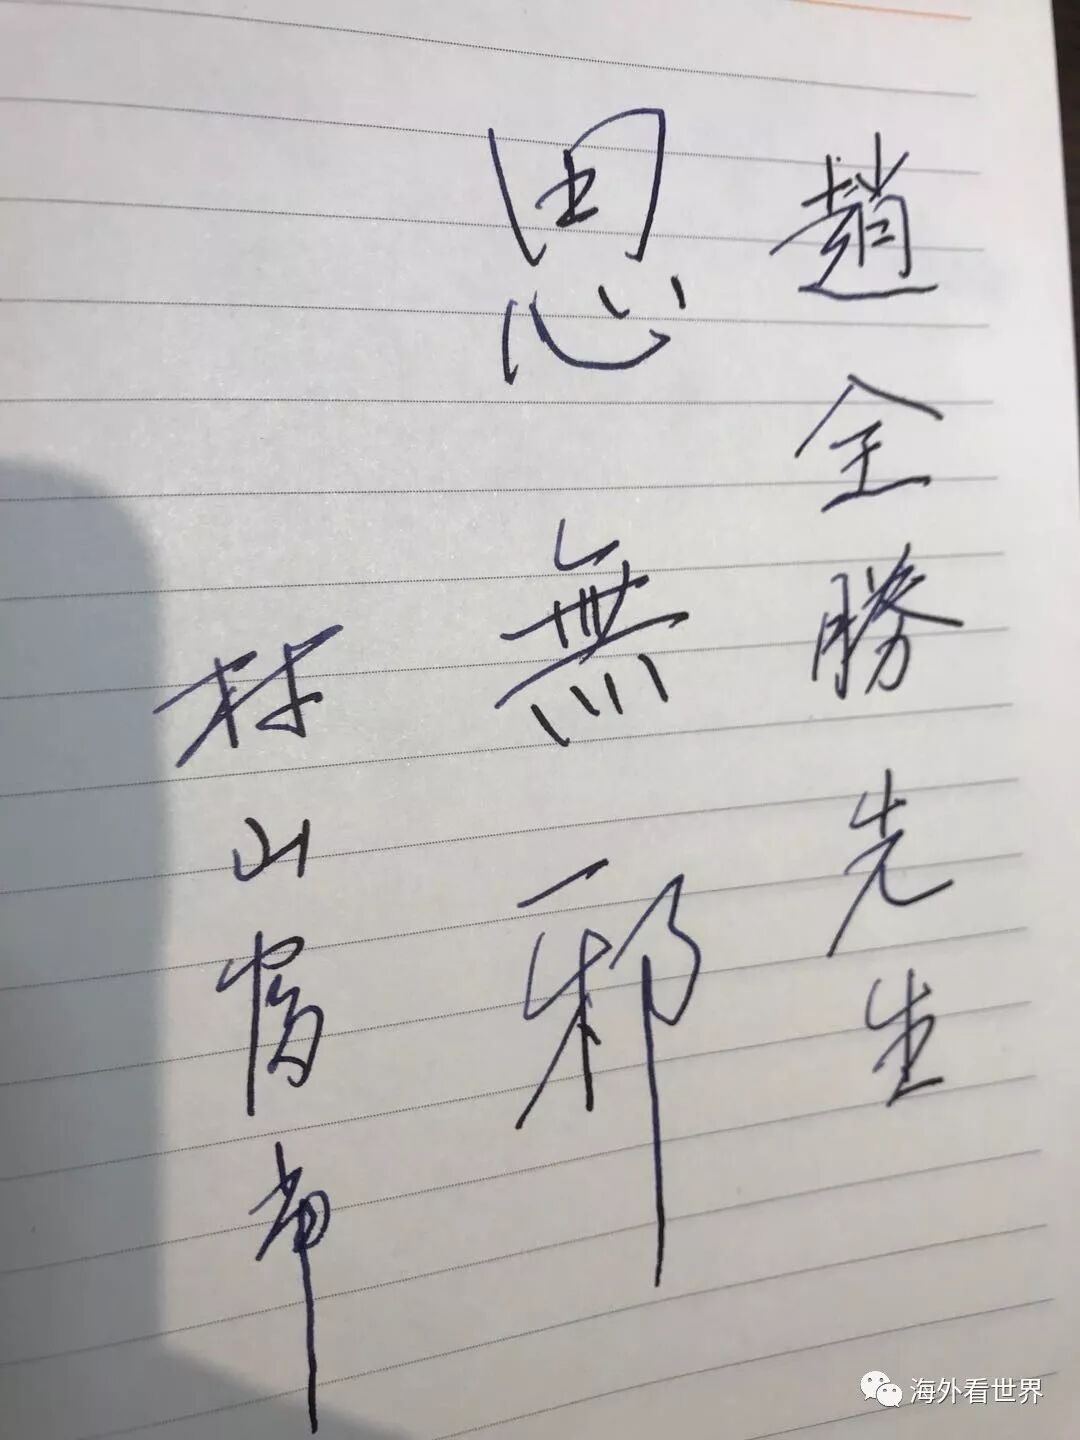 趙全勝先生
思無邪
村山富市
海外看世界